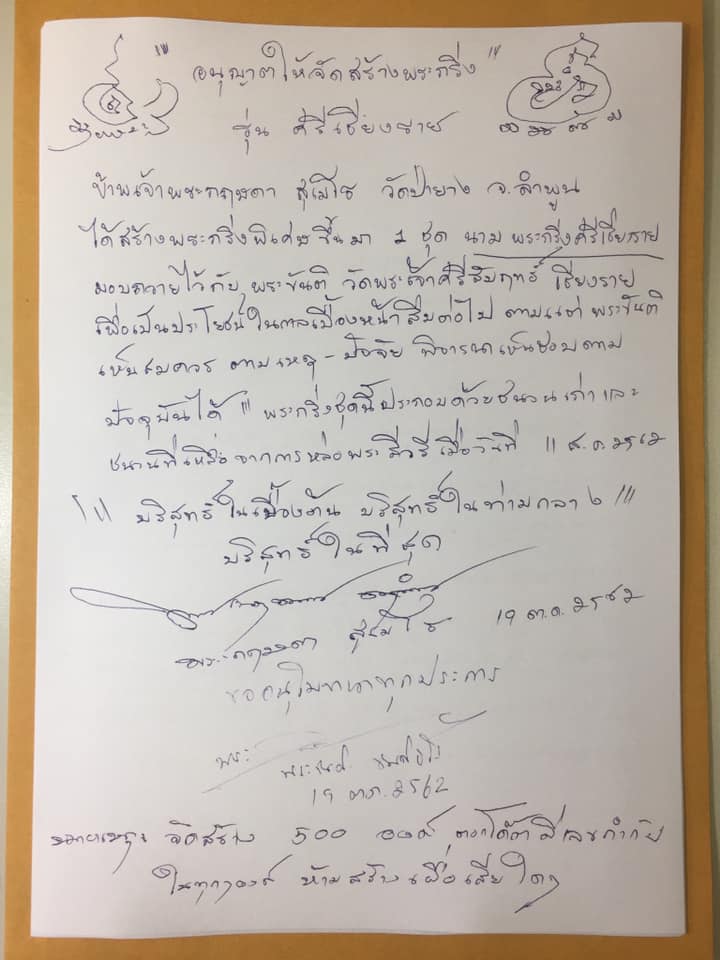 "' อนุญาตให้จัดสร้างพระกริ่ง "'
รุ่น ศิริเชียงราย
ข้าพเจ้าพระกฤษดา สุเมโธ วัดป่ายาง จ.ลำพูน
ได้สร้างพระกริ่งพิเศษขึ้นมา 1 ชุด นาม พระกริ่งศิริเชียงราย
มอบถวายไว้กับ พระขันติ วัดพระเจ้าศิริสัมฤทธิ์ เชียงราย
เพื่อเป็นประโยชน์ในกาลเบื้องหน้าสืบต่อไป ตามแต่ พระขันติ
เห็นสมควร ตามเหตุ - ปัจจัย พิจารณาเห็นชอบตาม
ปัจจุบันได้ "' พระกริ่งชุดนี้ประกอบด้วยชนวนเก่าและ
ชนวนที่เหลือจากการหล่อพระสิวลีเมื่อวันที่ 11 ส.ค. ๒๕๖๒
"' บริสุทธิ์ในเบื้องต้น บริสุทธิ์ในท่ามกลาง "'
บริสุทธิ์ในที่สุด
พระกฤษดา สุเมโธ 19 ต.ค. ๒๕๖๒
ขออนุโมทนาทุกประการ
พระ
19 ต.ค. ๒๕62
หมายเหตุ จัดสร้าง 500 องค์ ตอกโค้ดมีเลขกำกับ
ในทุกองค์ ห้ามสร้างเผื่อเสียใดๆ